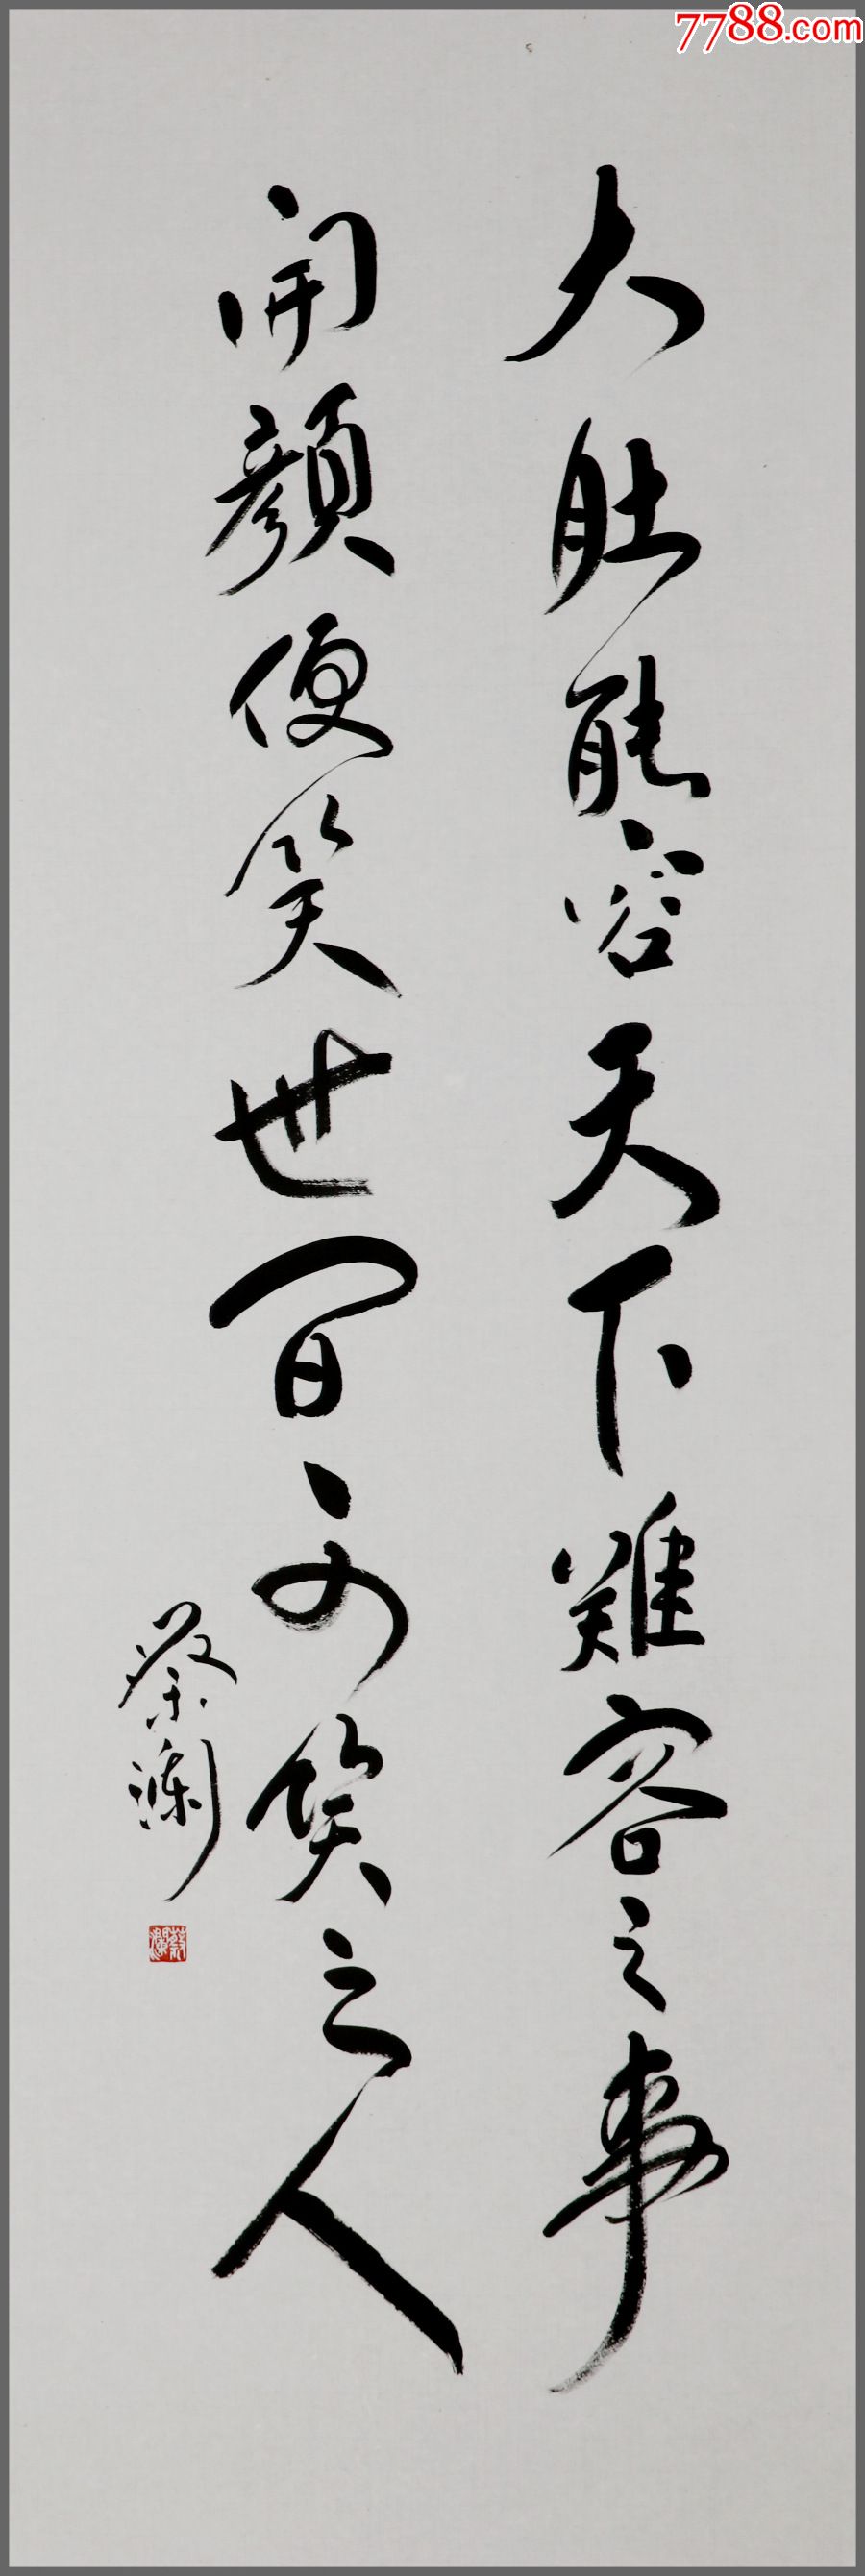 7788.com
大肚能容天下難容之事
開顏便笑世間可笑之人
蔡瀾
蔡瀾